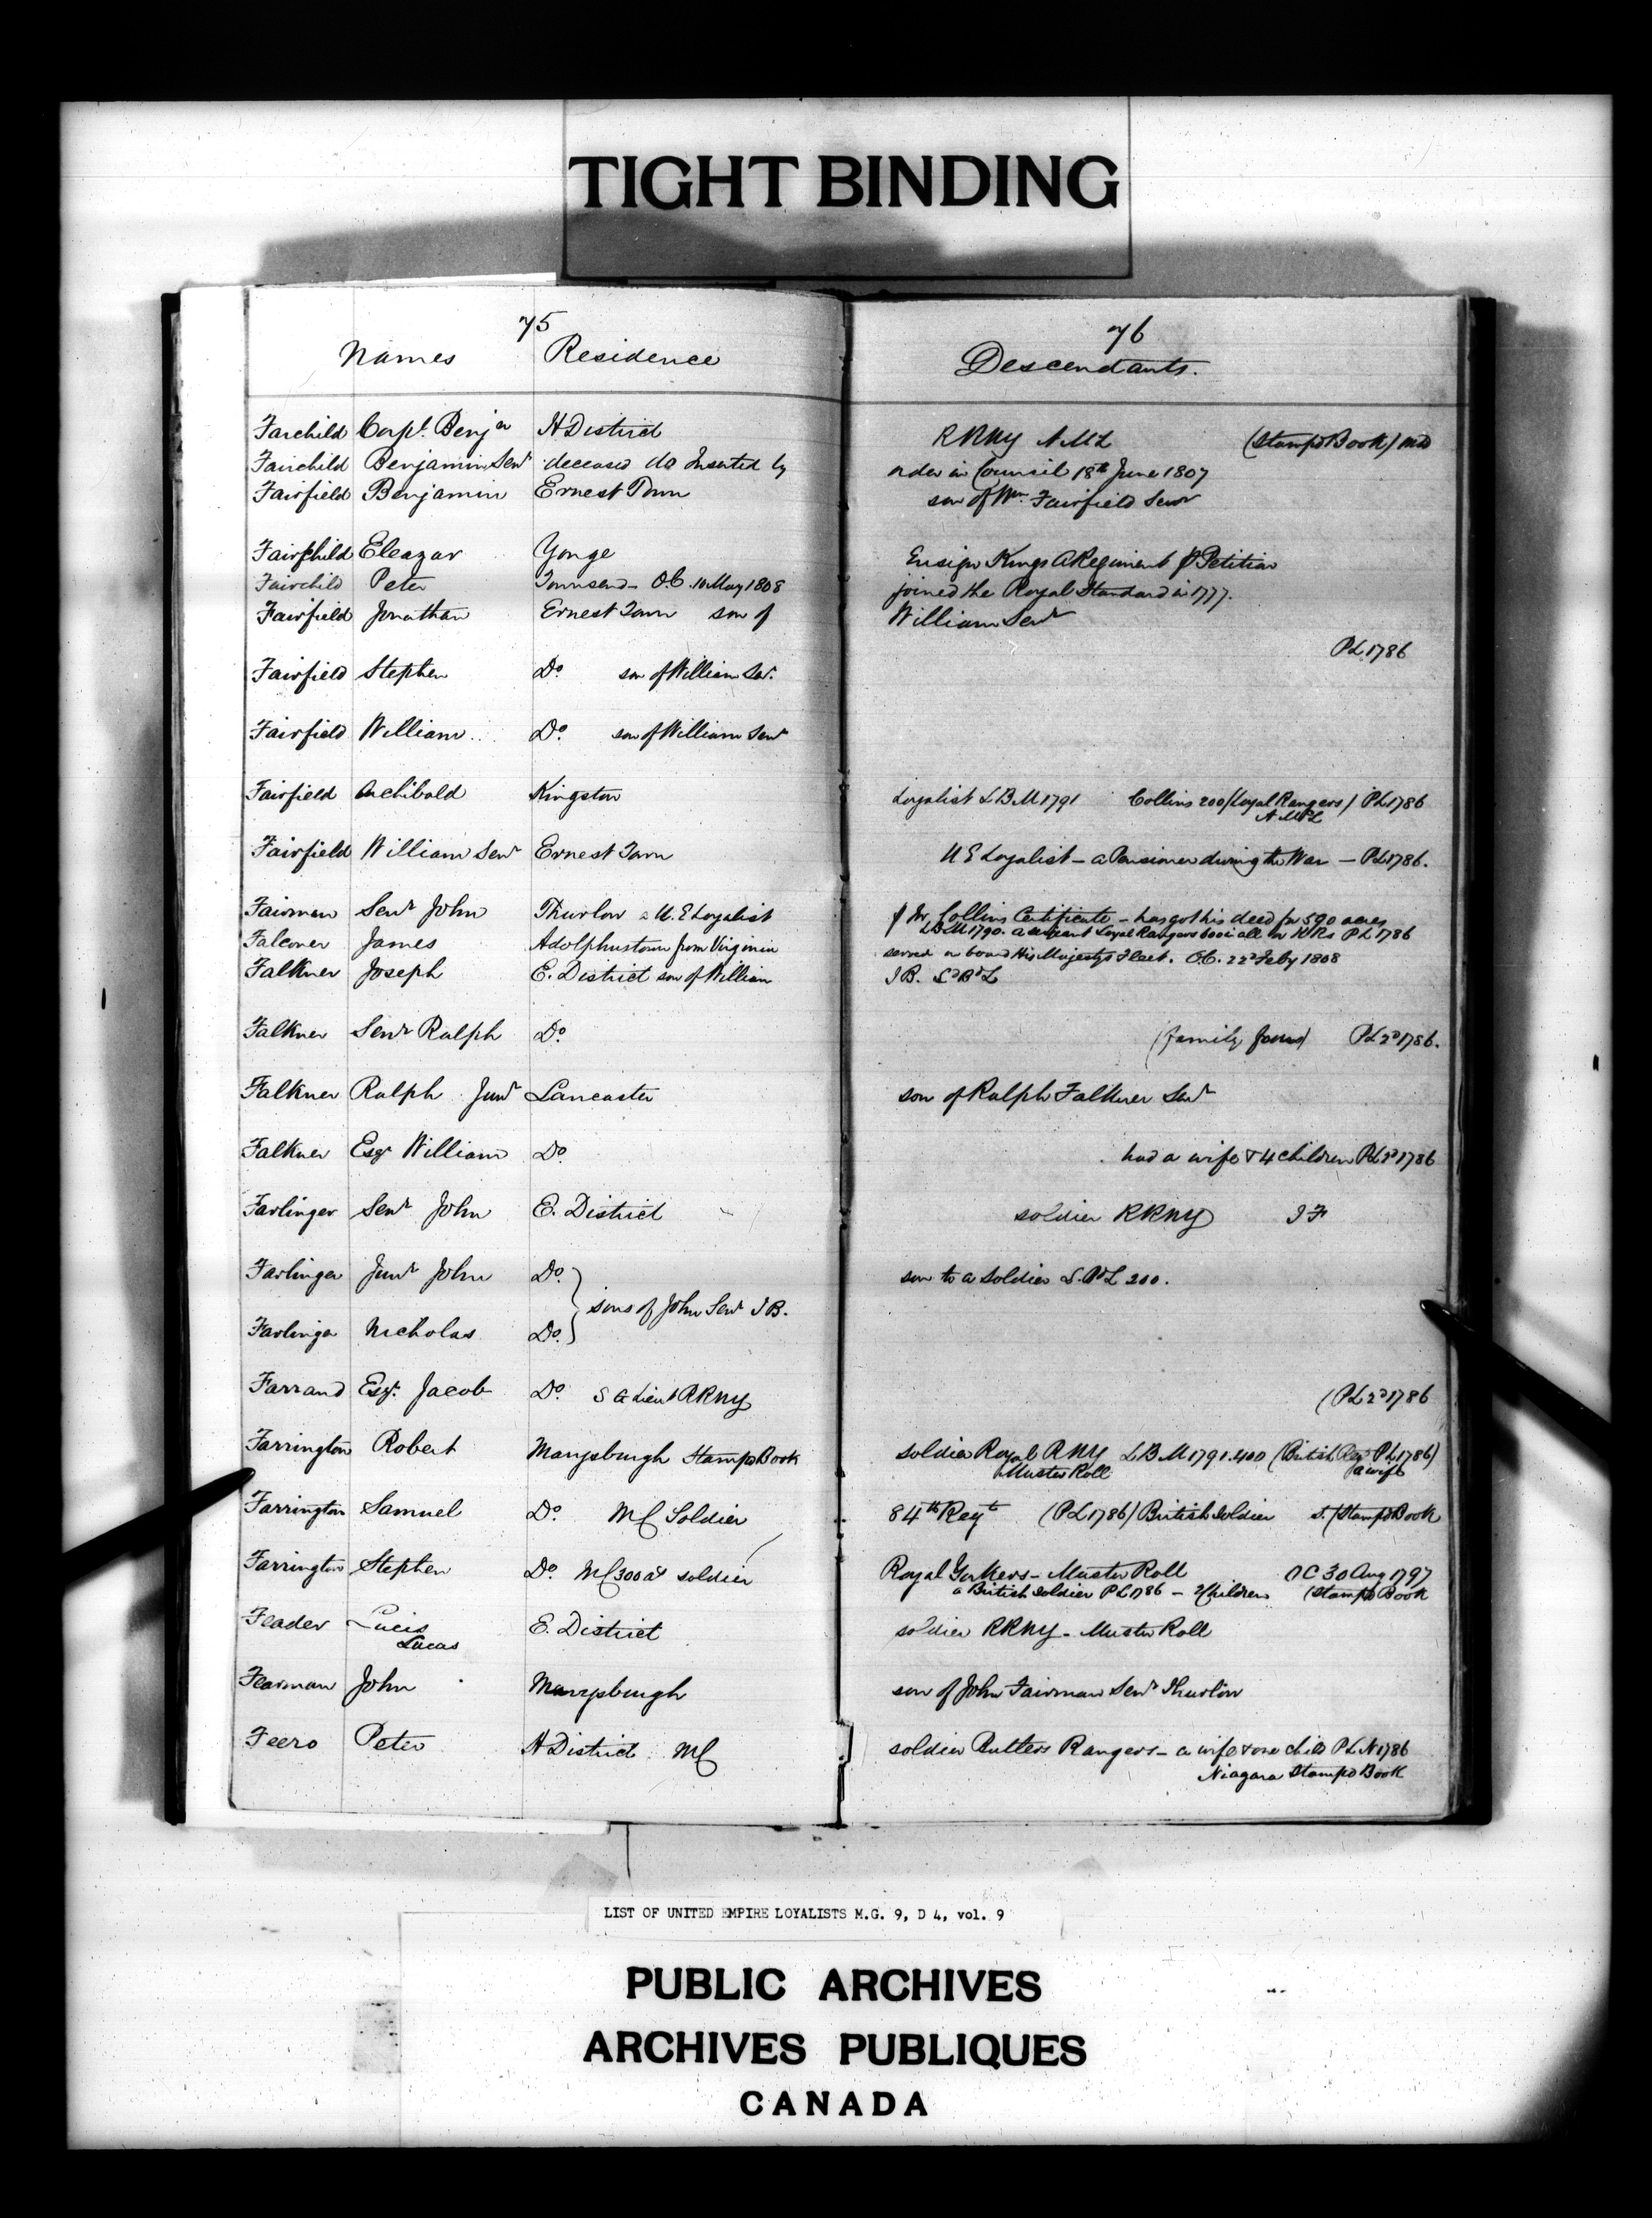 TIGHT BINDING
75
Names Residence
76
Descendants.
Fairchild Corpl. Benjn H District RRNY N.M.L (Stampd Book) MD
Fairchild Benjamin Senr deceased do Inserted by order in Council 18th June 1807
Fairfield Benjamin Ernest Town son of Wm Fairfield Senr
Fairchild Eleazar Yonge Ensign Kings A Regiment Petition
Fairchild Peter Townsend - O.C. 10 May 1808 joined the Royal Standard in 1777.
Fairfield Jonathan Ernest Town son of William Senr
PL 1786
Fairfield Stephen Do. son of William Senr.
Fairfield William Do. son of William Senr
Fairfield Archibald Kingston Loyalist L B M 1791 Collins 200 (Loyal Rangers) PL 1786
Fairfield William Senr Ernest Town U E Loyalist - a Pensioner during the War - PL 1786.
Fairman Senr John Thurlow a U. E Loyalist Mr. Collins Certificate - has got his deed for 590 acres
LBM 1790. a Loyal Rangers PL 1786
Falconer James Adolphustown from Virginia served on board His Majestys Fleet. O.C. 22d Feby 1808
Falkner Joseph E. District son of William J B.
Falkner Senr Ralph Do (family) PL 2d 1786.
Falkner Ralph Junr Lancaster son of Ralph Falkner Senr
Falkner Esqr William Do. had a wife & 4 children PL 2d 1786
Farlinger Senr John E. District soldier RRNY J F
Farlinger Junr John Do. son to a soldier 200.
sons of John Senr J B.
Farlinger Nicholas Do.
Farrand Esqr. Jacob Do. Lieut RRNY (PL 2d 1786
Farrington Robert Marysburgh Stampd Book soldier Royal RNY L B M 1791. 400 (British Regt PL 1786)
Muster Roll a wife
Farrington Samuel Do. MC Soldier 84th Regt (PL 1786) British soldier s. (Stampd Book
Farrington Stephen Do. MC 300 as soldier Royal Yorkers - Muster Roll OC 30 Aug 1797
a British soldier PL 1786 - 2 Children (Stampd Book
Feader Lucis E. District soldier RRNY - Muster Roll
Lucas
Fearman John Marysburgh son of John Fairman Senr Thurlow
Feero Peter H District MC soldier Butlers Rangers - a wife & one child PL N 1786
Niagara Stampd Book
LIST OF UNITED EMPIRE LOYALISTS M.G. 9, D 4, vol. 9
PUBLIC ARCHIVES
ARCHIVES PUBLIQUES
CANADA